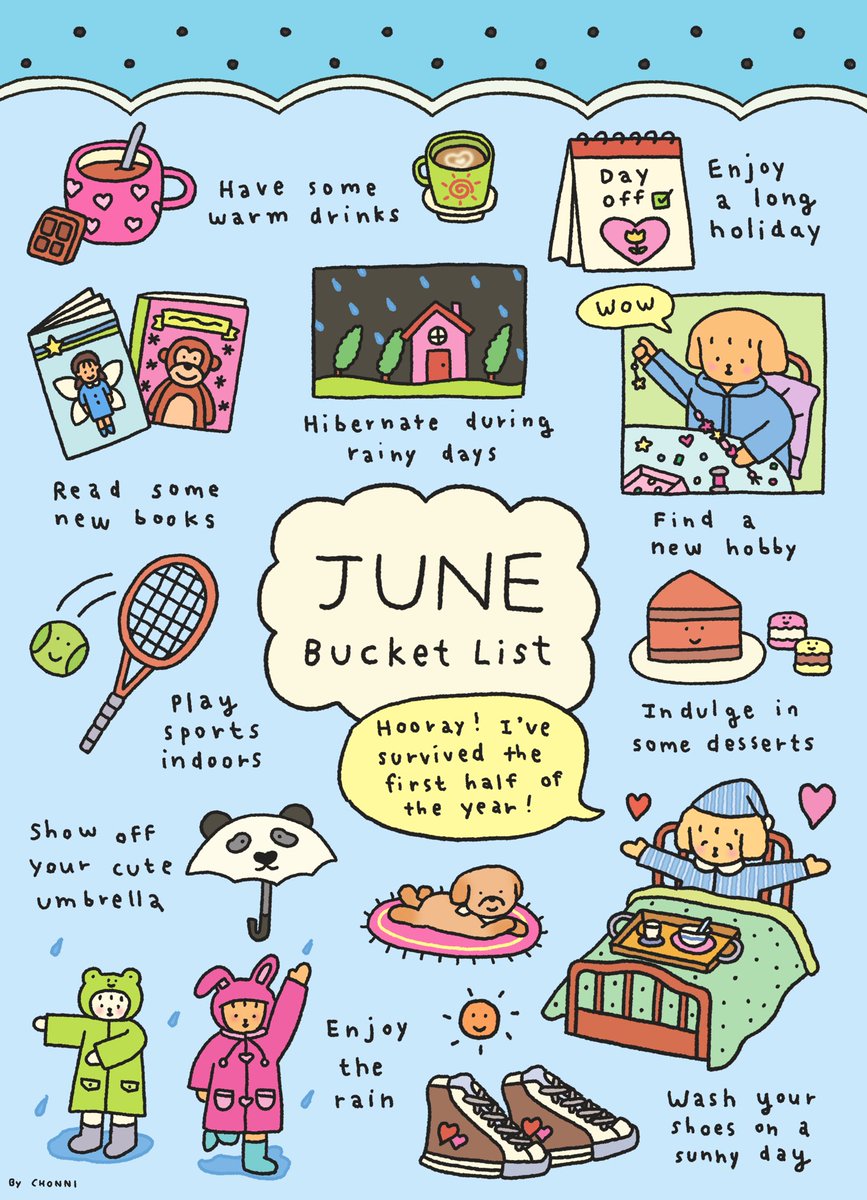 Have some
warm drinks
Day
off
Enjoy
a long
holiday
Hibernate during
rainy days
Wow
Read some
new books
Find a
new hobby
JUNE
Bucket List
Play
sports
indoors
Hooray! I've
survived the
first half of
the year!
Indulge in
some desserts
Show off
your cute
umbrella
Enjoy
the
rain
Wash your
shoes on a
sunny day
By CHONNI